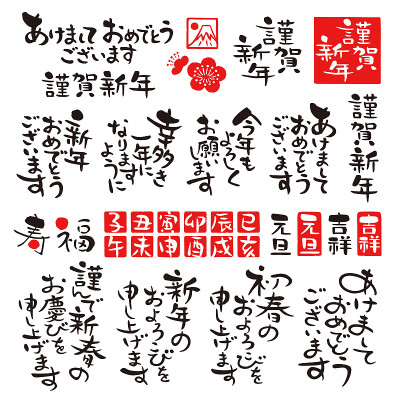 あけまして おめでとう
ございます
謹賀新年
謹賀
新年
謹賀
新年
新年
おめでとう
ございます
幸多き
一年に
なります
ように
今年も
よろしく
お願い
します
あけまして
おめでとう
ございます
謹賀新年
寿
福
子 丑 寅 卯 辰 巳
午 未 申 酉 戌 亥
元旦
元旦
吉祥
吉祥
謹んで新春の
お慶びを
申し上げます
新年の
およろこびを
申し上げます
初春の
およろこびを
申し上げます
あけまして
おめでとう
ございます